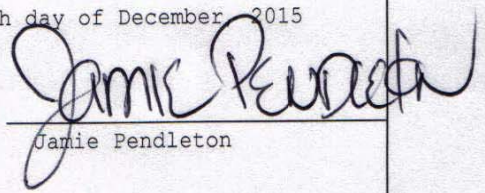 h day of December 2015
Jamie Pendleton
Jamie Pendleton